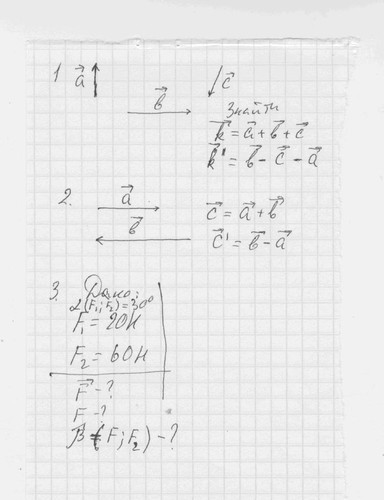 1 a⃗ c⃗
b⃗
Знайти
k⃗ = a⃗ + b⃗ + c⃗
k⃗' = b⃗ - c⃗ - a⃗
2. a⃗ c⃗ = a⃗ + b⃗
b⃗ c⃗' = b⃗ - a⃗
3. Дано:
α(F₁; F₂) = 30°
F₁ = 20Н
F₂ = 60Н
F⃗ - ?
F - ?
β (F; F₂) - ?